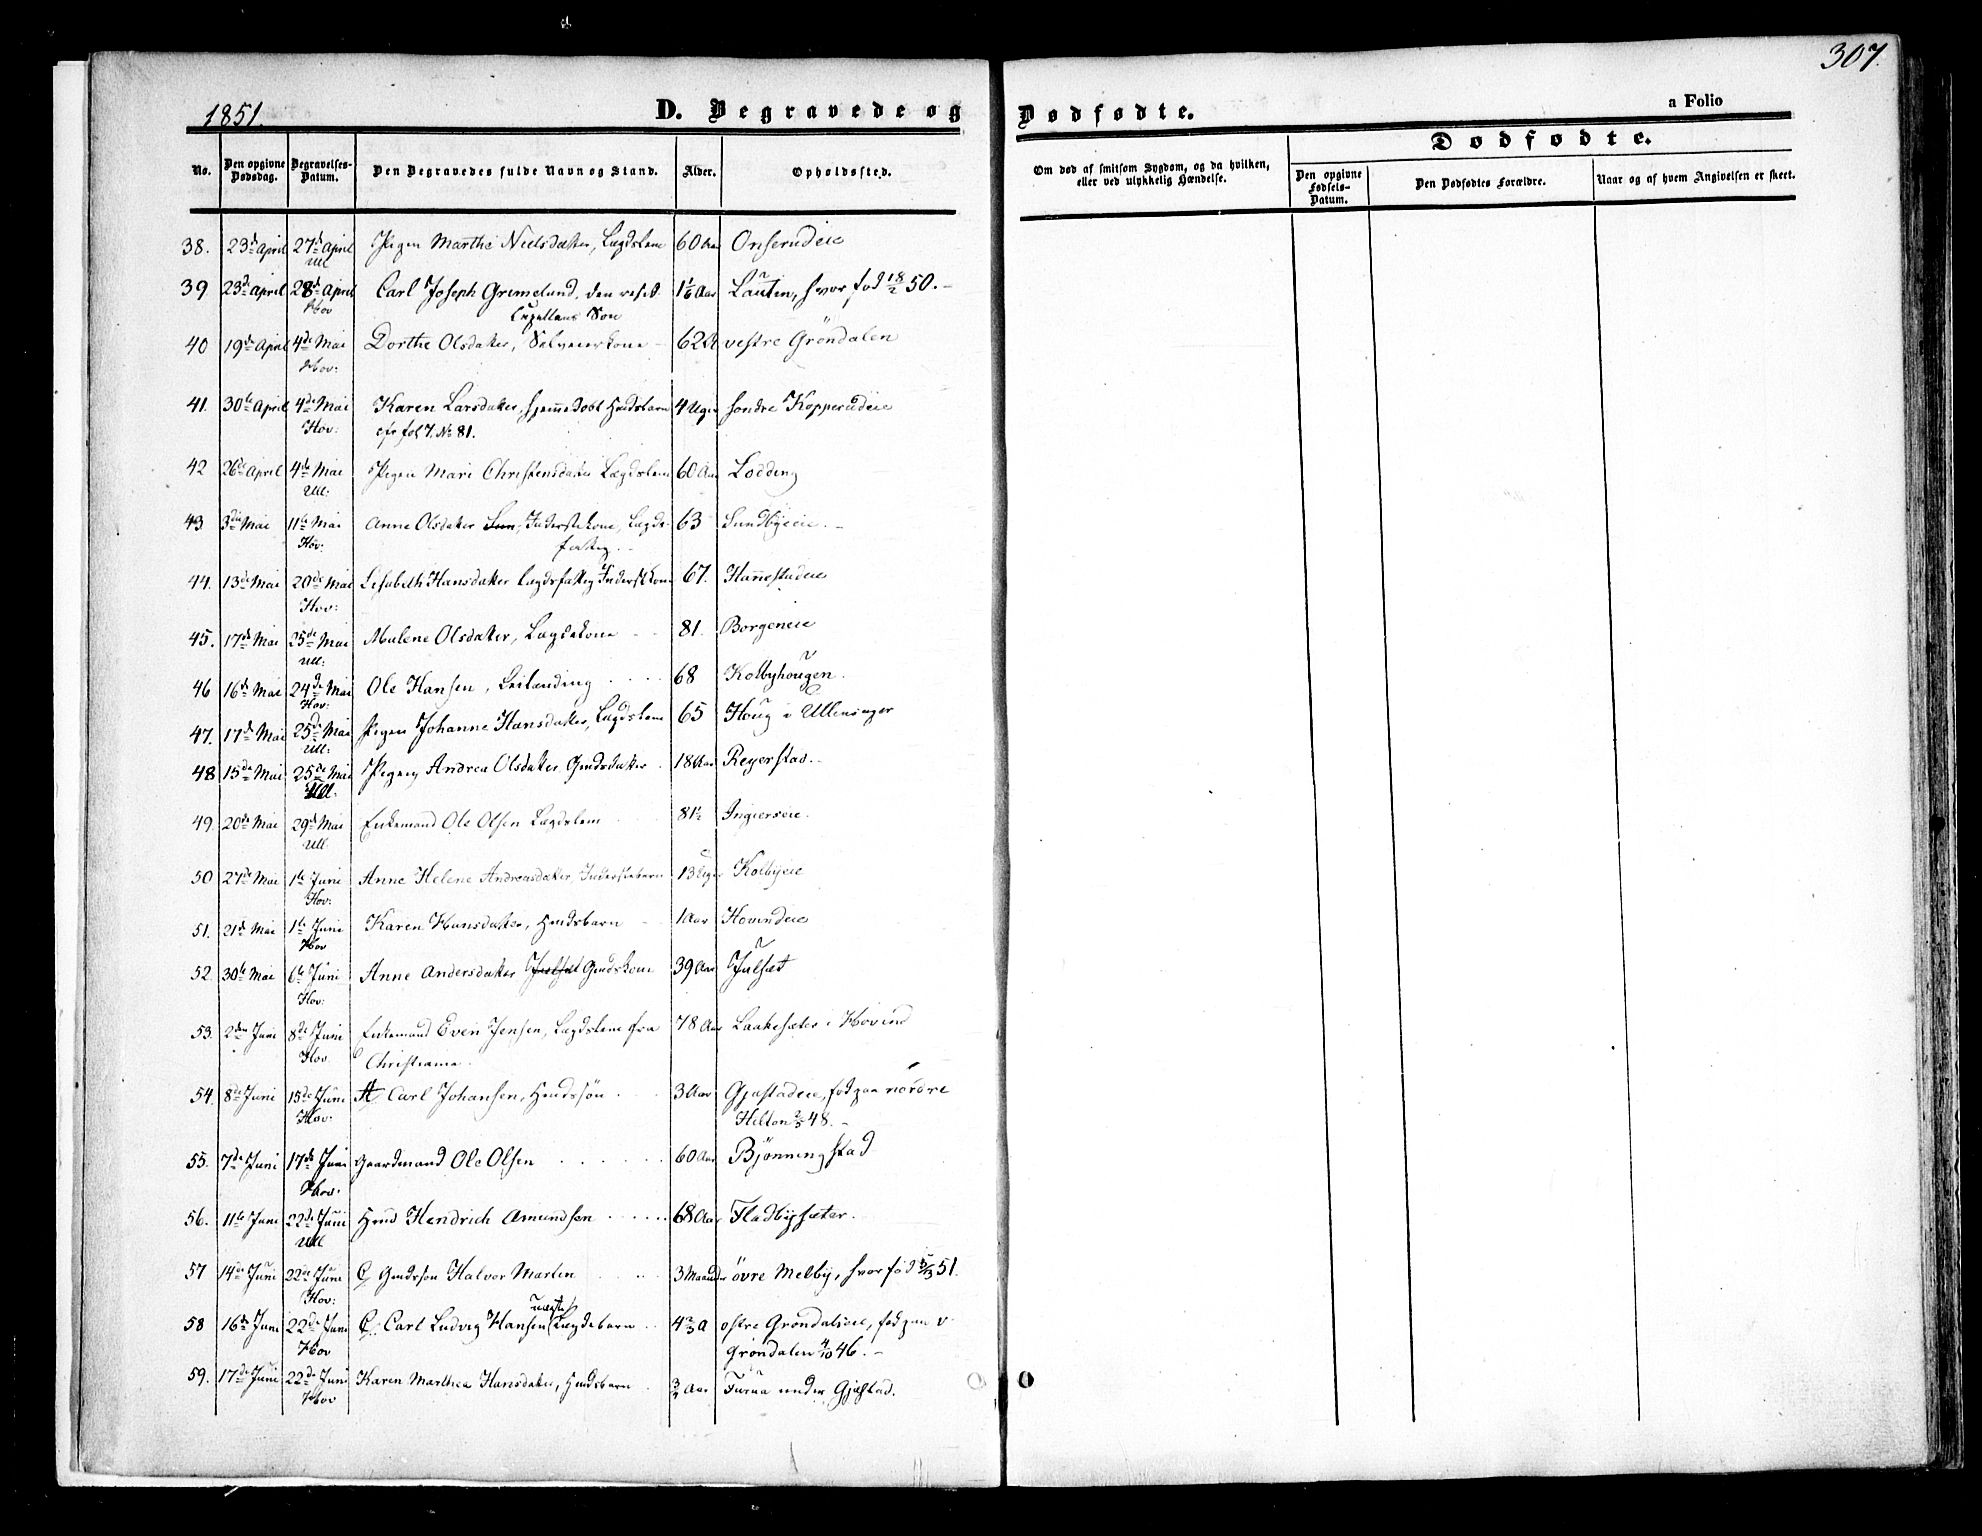 307.
1851.
D. Begravede og Dødfødte.
a Folio
No.
Den opgivne Dødsdag.
Begravelses-Datum.
Den Begravedes fulde Navn og Stand.
Alder.
Opholdssted.
Om død af smitsom Sygdom, og da hvilken, eller ved ulykkelig Hændelse.
Dødfødte.
Den opgivne Fødsels-Datum.
Den Dødfødtes Forældre.
Naar og af hvem Angivelsen er skeet.
38. 23de April 27de April Pigen Marthe Nielsdatter, Lægdslem 60 Aar Onserudeie
Ull
39 23de April 28de April Carl Joseph Grimelund, den resid. 1 1/6 Aar Lauten, hvor fød 18/2 50.
Hov Capellans Søn
40 19de April 4de Mai Dorthe Olsdatter, Selveierkone 62 A vestre Gröndalen
Hov:
41. 30te April 4de Mai Karen Larsdatter, hjemmedøbt Huusbarn 4 Uger søndre Kopperudeie
Hov: cfr fol 7. No 81.
42 26de April 4de Mai Pigen Mari Christensdatter Lægdslem 60 Aar Lodding
Ull:
43 3die Mai 11te Mai Anne Olsdatter Inderstekone, Lægds- 63 Sundbyeie.
Hov: fattig
44. 13de Mai 20de Mai Lisabeth Hansdatter Lægdsfattig Inderstkone 67. Hannestadeie
Hov:
45. 17de Mai 25de Mai Malene Olsdatter, Lægdskone 81. Borgeneie
Ull:
46 16de Mai 24de Mai Ole Hansen, Leilænding 68 Kolbyhougen.
Hov:
47. 17de Mai 25de Mai Pigen Johanne Hansdatter, Lægdslem 65 Houg i Ullensager
Ull:
48 15de Mai 25de Mai Pigen Andrea Olsdatter Gmdsdatter 18 Aar Reyerstad.
Ull:
49. 20de Mai 29de Mai Enkemand Ole Olsen Lægdslem 81½ Ingierseie.
Ull
50 27de Mai 1te Juni Anne Helene Andreasdatter Inderstebarn 13 Uger Kolbyeie
Hov:
51. 21de Mai 1te Juni Karen Hansdatter, Hmdsbarn 1 Aar Hovindeie
Hov
52. 30te Mai 6te Juni Anne Andersdatter Julset Gmdskone 39 Aar Julsæt
Hov:
53. 2den Juni 8de Juni Enkemand Even Jensen, Lægdslem fra 78 Aar Laakesæter i Hovind
Hov Christiania.
54. 8de Juni 15de Juni Carl Johansen, Hmdssøn 3 Aar Gjestadeie, fød paa nordre
Hov: Hilton 2/5 48.
55. 7de Juni 17de Juni Gaardmand Ole Olsen 60 Aar Bjönningstad
Hov:
56. 11te Juni 22de Juni Hmd Hendrich Amundsen 68 Aar Fladbysæter.
Ull
57 14de Juni 22de Juni Gmdssøn Halvor Martin 3 Maaneder övre Melby, hvor fød 5/3 51.
Hov:
58 16de Juni 22de Juni Carl Ludvig Hansen uægte Lægdebarn 4 2/3 A østre Gröndaleie, fød paa v.
Hov Gröndalen 4/10 46.
59. 17de Juni 22de Juni Karen Marthea Hansdatter, Hmdsbarn 3/4 Aar Furua under Gjestad.
Hov